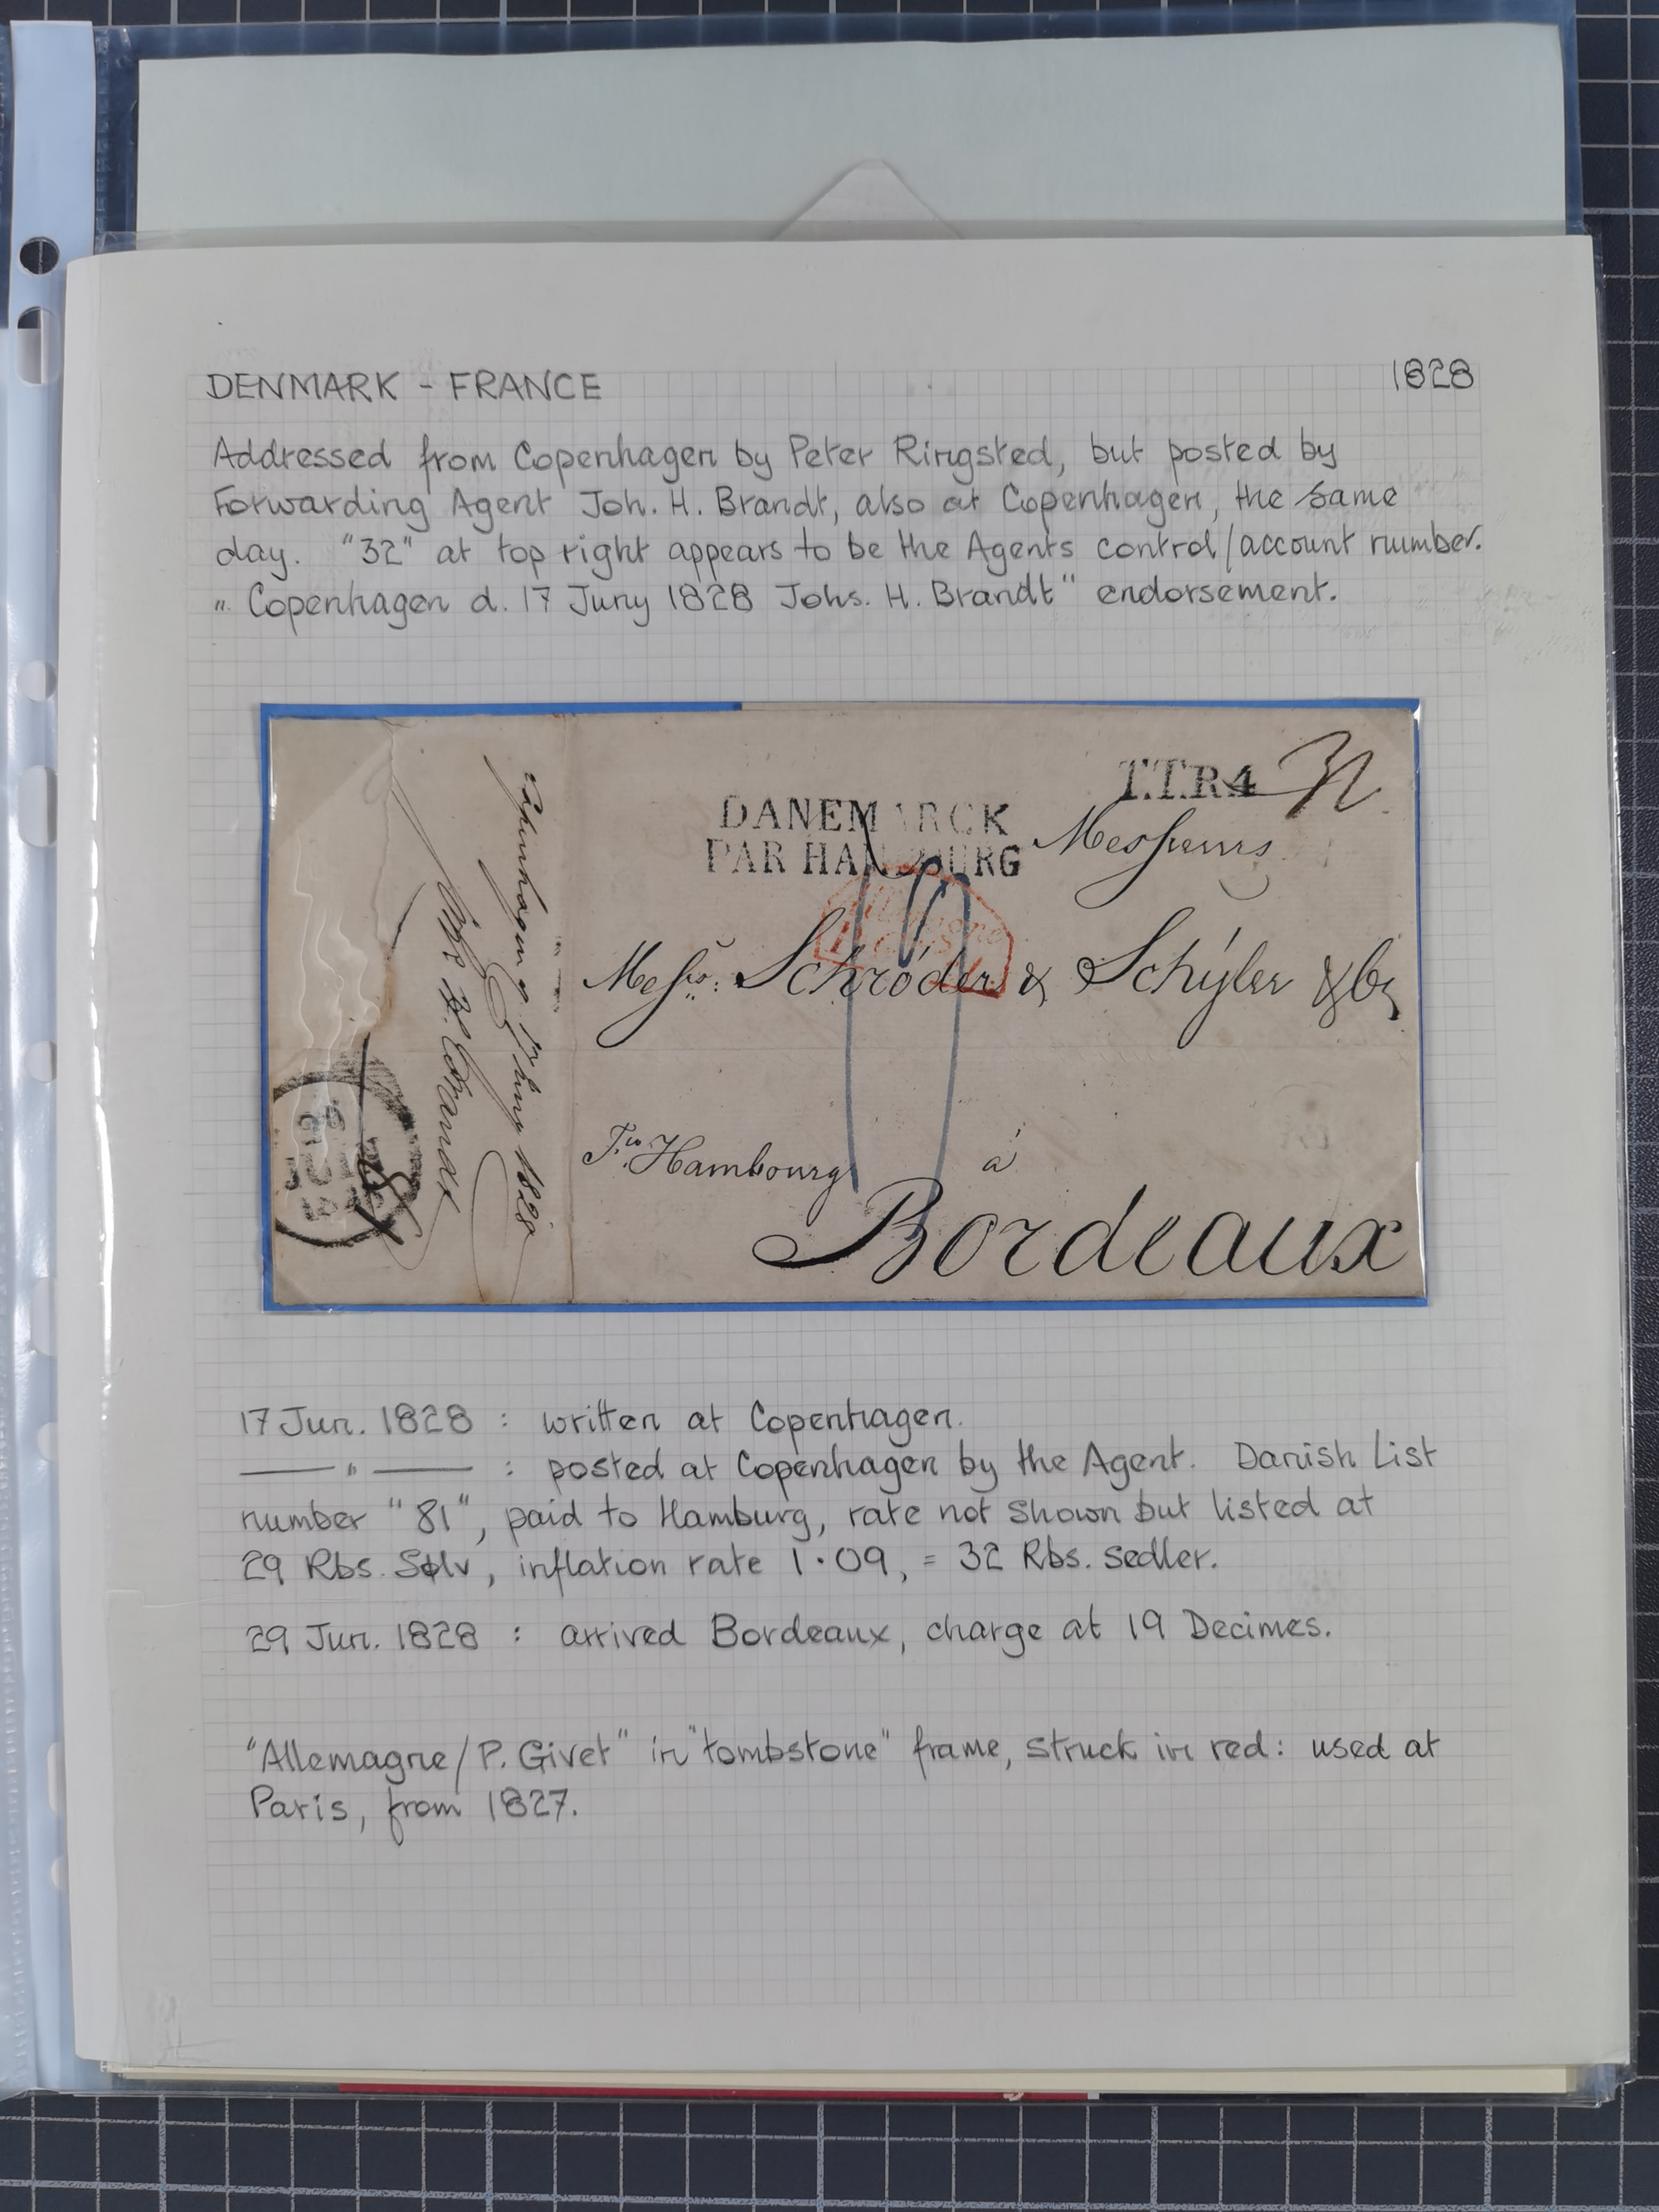 DENMARK - FRANCE
1828
Addressed from Copenhagen by Peter Ringsted, but posted by
Forwarding Agent Joh. H. Brandt, also at Copenhagen, the same
day. "32" at top right appears to be the Agents control/account number.
"Copenhagen d. 17 Juny 1828 Johs. H. Brandt" endorsement.
T.T.R.4
32
DANEMARCK
PAR HAMBOURG
Messieurs
Messrs: Schröder & Schÿler & Co
Fco. Hambourg
à
Bordeaux
Copenhagen d. 17 Juny 1828
Johs H. Brandt
29
JUIN
1828
17 Jun. 1828 : written at Copenhagen.
—— " —— : posted at Copenhagen by the Agent. Danish List
number "81", paid to Hamburg, rate not shown but listed at
29 Rbs. Sølv, inflation rate 1.09, = 32 Rbs. sedler.
29 Jun. 1828 : arrived Bordeaux, charge at 19 Decimes.
"Allemagne/P. Givet" in "tombstone" frame, struck in red: used at
Paris, from 1827.